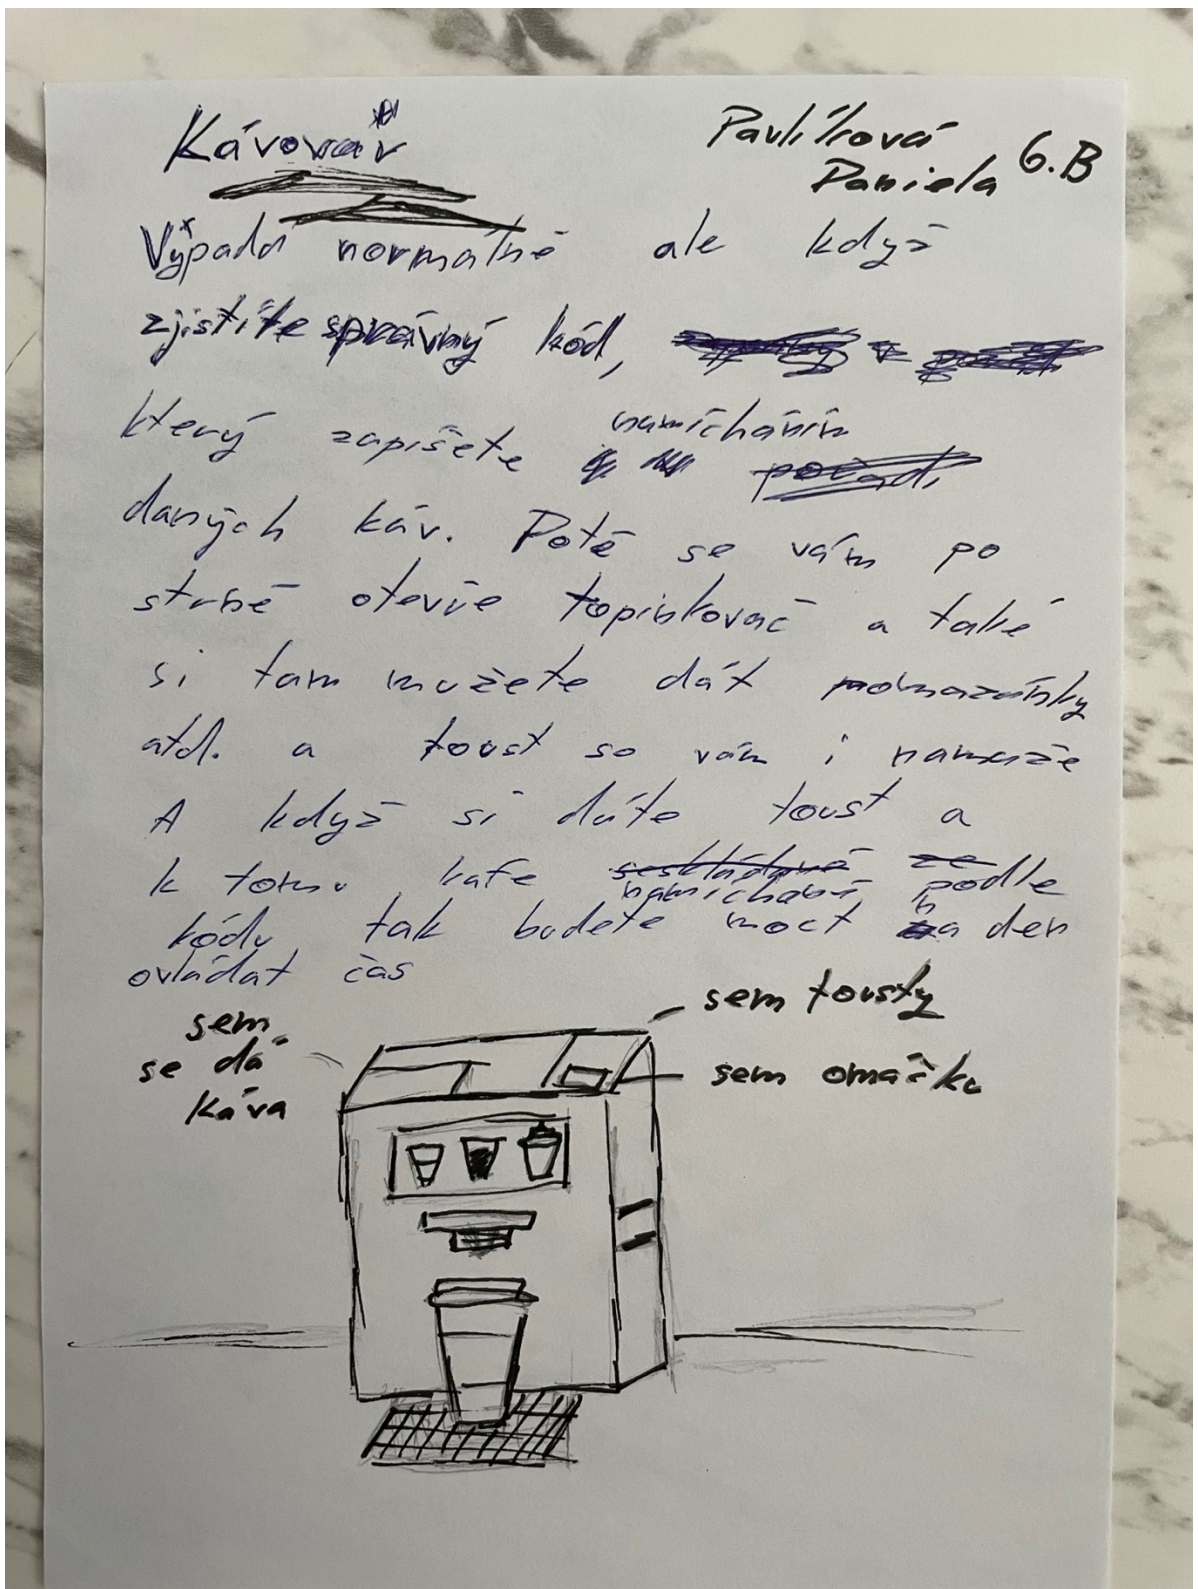 Kávovar
Pavlíková
Daniela 6.B
Vypadá normálně ale když
zjistíte správný kód,
který zapíšete namícháním
daných káv. Poté se vám po
straně otevře topinkovač a také
si tam mužete dát pomazánky
atd. a toust se vám i namaže
A když si dáte toust a
k tomu kafe namíchané podle
kódu tak budete moct na den
ovládat čas
sem
se dá
káva
sem tousty
sem omáčku